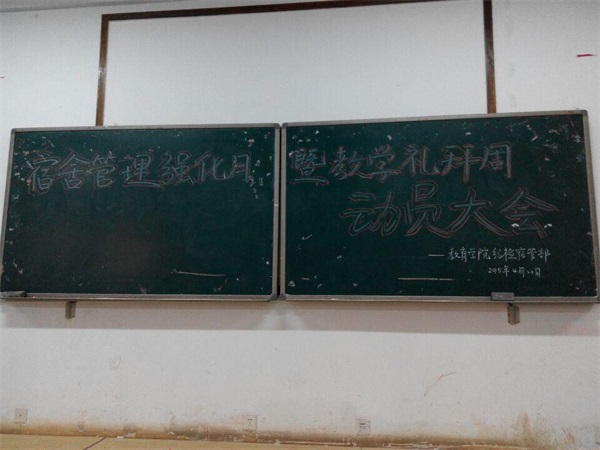 宿舍管理强化月
暨教学礼拜周
动员大会
——教育学院纪检宿管部
2015年4月